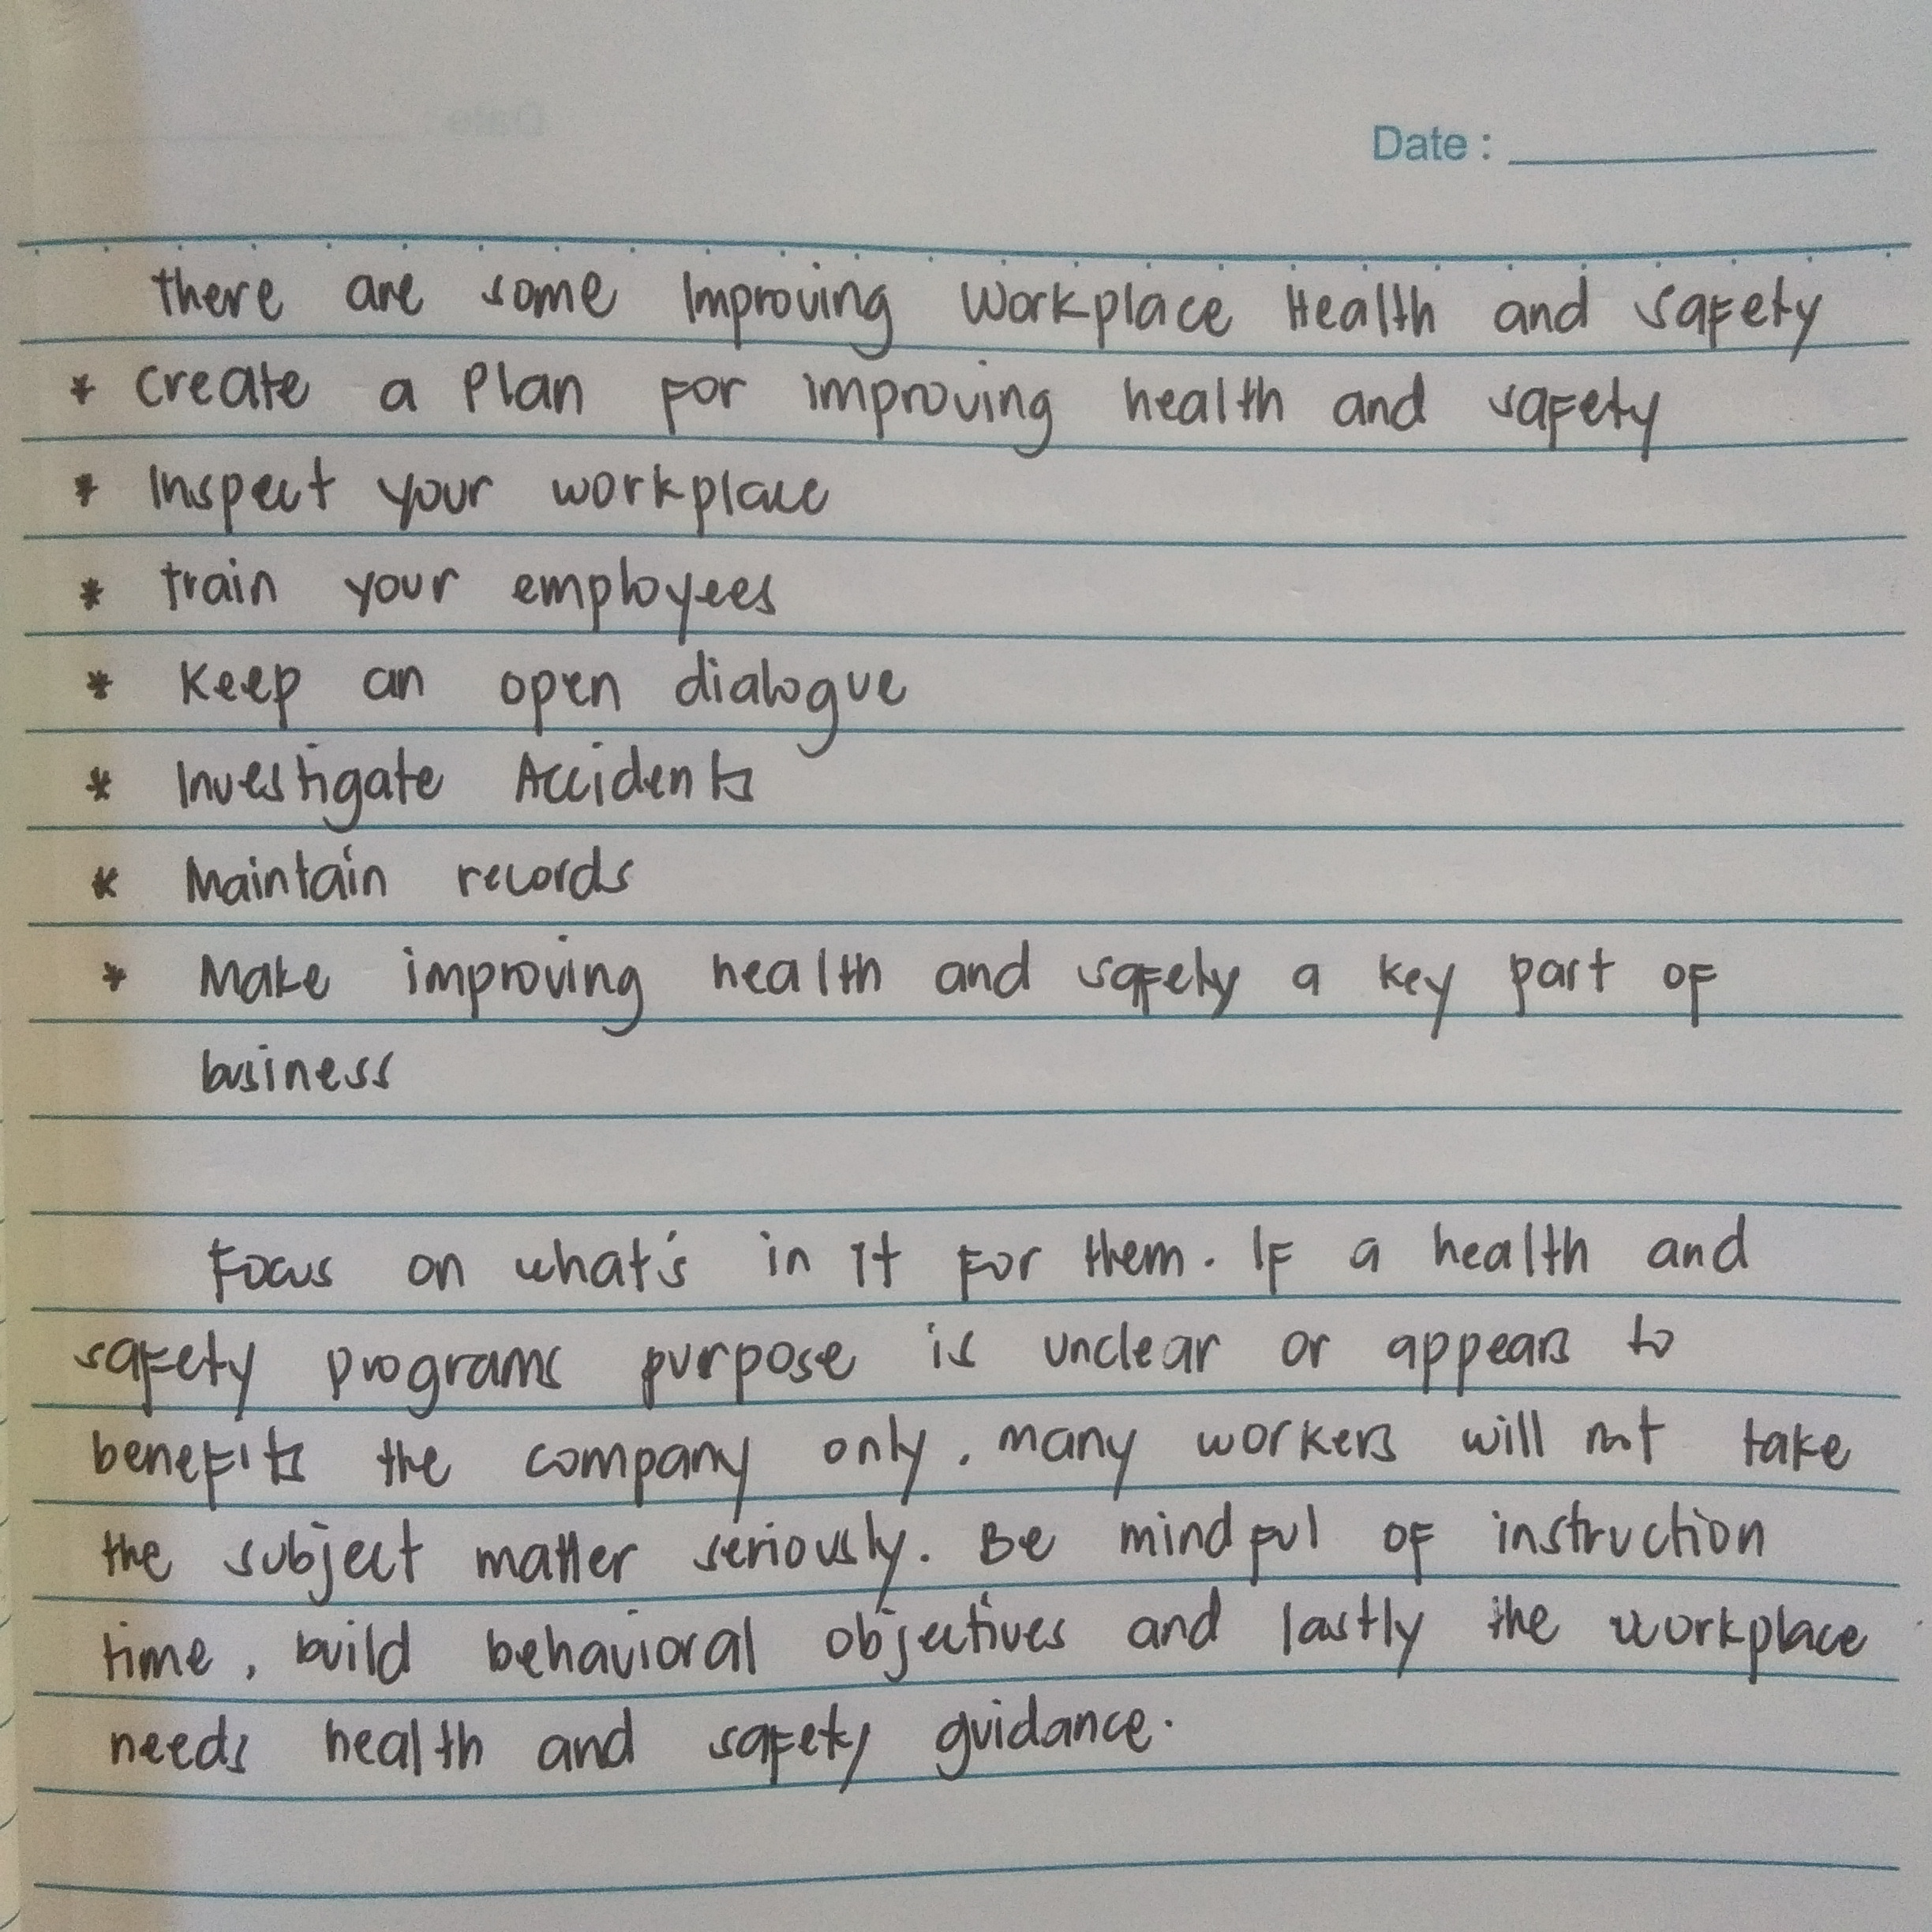 Date :
there are some Improving Workplace Health and safety
* Create a Plan for improving health and safety
* Inspect your workplace
* train your employees
* Keep an open dialogue
* Investigate Accidents
* Maintain records
* Make improving health and safety a key part of
business
Focus on what's in it for them. If a health and
safety programs purpose is unclear or appears to
benefits the company only, many workers will not take
the subject matter seriously. Be mindful of instruction
time, build behavioral objectives and lastly the workplace
needs health and safety guidance.